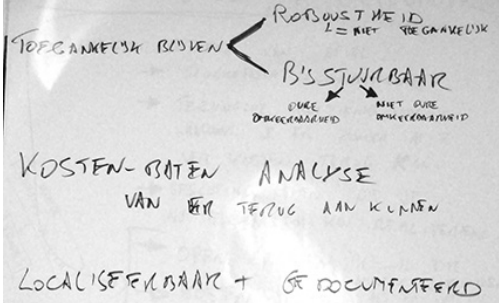 TOEGANKELIJK BLIJVEN
ROBUUSTHEID
= NIET TOEGANKELIJK
BIJSTUURBAAR
PURE OMKEERBAARHEID
NIET PURE OMKEERBAARHEID
KOSTEN-BATEN ANALYSE
VAN ER TERUG AAN KUNNEN
LOCALISEERBAAR + GEDOCUMENTEERD